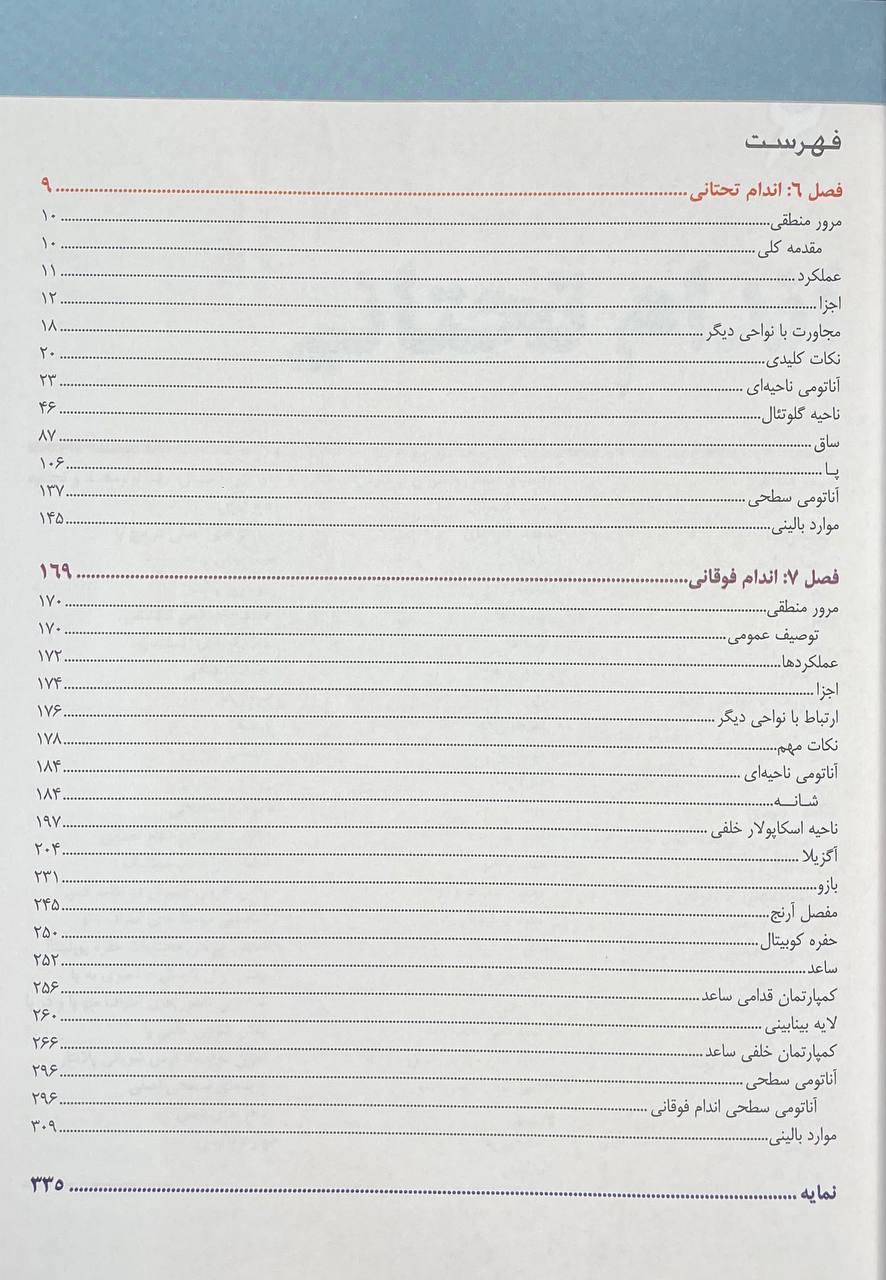 فهرست
فصل ٦: اندام تحتانی ... ۹
مرور منطقی ... ۱۰
مقدمه کلی ... ۱۰
عملکرد ... ۱۱
اجزا ... ۱۲
مجاورت با نواحی دیگر ... ۱۸
نکات کلیدی ... ۲۰
آناتومی ناحیه‌ای ... ۲۳
ناحیه گلوتئال ... ۴۶
ساق ... ۸۷
پـا ... ۱۰۶
آناتومی سطحی ... ۱۳۷
موارد بالینی ... ۱۴۵
فصل ۷: اندام فوقانی ... ۱۶۹
مرور منطقی ... ۱۷۰
توصیف عمومی ... ۱۷۰
عملکردها ... ۱۷۲
اجزا ... ۱۷۴
ارتباط با نواحی دیگر ... ۱۷۶
نکات مهم ... ۱۷۸
آناتومی ناحیه‌ای ... ۱۸۴
شـانــه ... ۱۸۴
ناحیه اسکاپولار خلفی ... ۱۹۷
آگزیلا ... ۲۰۴
بازو ... ۲۳۱
مفصل آرنج ... ۲۴۵
حفره کوبیتال ... ۲۵۰
ساعد ... ۲۵۲
کمپارتمان قدامی ساعد ... ۲۵۶
لایه بینابینی ... ۲۶۰
کمپارتمان خلفی ساعد ... ۲۶۶
آناتومی سطحی ... ۲۹۶
آناتومی سطحی اندام فوقانی ... ۲۹۶
موارد بالینی ... ۳۰۹
نمایه ... ۳۳۵